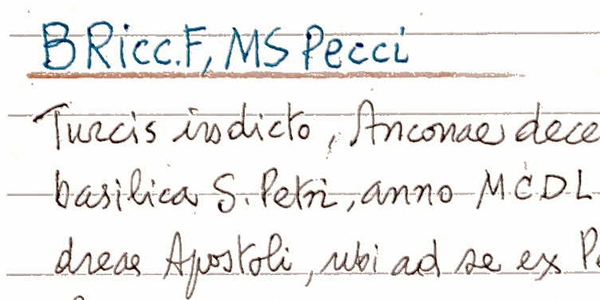 B Ricc. F, MS Pecci
Turcis indicto, Anconae dece
basilica S. Petri, anno MCDL
dreae Apostoli, ubi ad se ex P